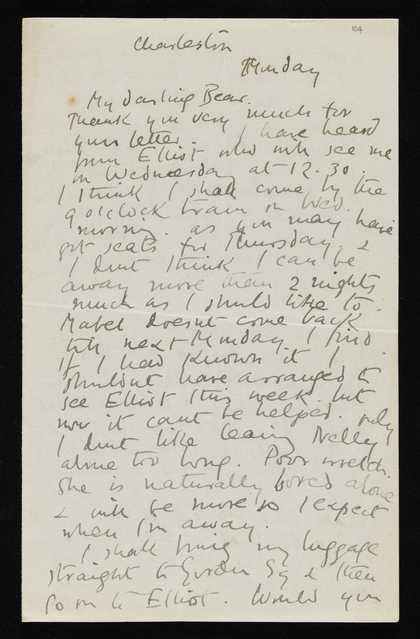 104
Charleston
Monday
My darling Bear.
Thank you very much for
your letter. I have heard
from Elliot who will see me
on Wednesday at 12.30.
I think I shall come by the
9 o'clock train on Wed.
morning. as you may have
got seats for Thursday, &
I dont think I can be
away more than 2 nights
much as I should like to.
Mabel doesnt come back
till next Monday I find.
If I had known it I
shouldnt have arranged to
see Elliot this week. but
now it cant be helped. only
I dont like leaving Nelly
alone too long. Poor wretch.
She is naturally bored alone
& will be more so I expect
when I'm away.
I shall bring my luggage
straight to Gordon Sq & then
go on to Elliot. Would you